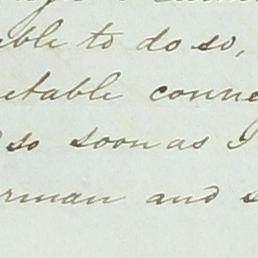 ble to do so,
etable conne
so soon as I
rman and s